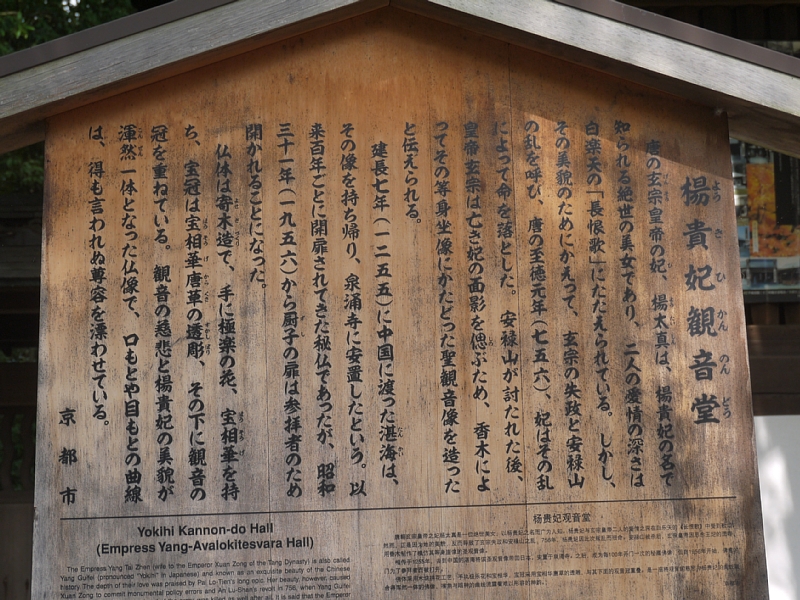 楊貴妃観音堂
唐の玄宗皇帝の妃、楊太真は、楊貴妃の名で
知られる絶世の美女であり、二人の愛情の深さは
白楽天の「長恨歌」にたたえられている。しかし、
その美貌のためにかえって、玄宗の失政と安禄山
の乱を呼び、唐の至徳元年(七五六)、妃はその乱
によって命を落とした。安禄山が討たれた後、
皇帝玄宗は亡き妃の面影を偲ぶため、香木によ
ってその等身坐像にかたどった聖観音像を造った
と伝えられる。
建長七年(一二五五)に中国に渡った湛海は、
その像を持ち帰り、泉涌寺に安置したという。以
来百年ごとに開扉されてきた秘仏であったが、昭和
三十一年(一九五六)から厨子の扉は参拝者のため
開かれることになった。
仏体は寄木造で、手に極楽の花、宝相華を持
ち、宝冠は宝相華唐草の透彫、その下に観音の
冠を重ねている。観音の慈悲と楊貴妃の美貌が
渾然一体となった仏像で、口もとや目もとの曲線
は、得も言われぬ尊容を漂わせている。
京都市
Yokihi Kannon-do Hall
(Empress Yang-Avalokitesvara Hall)
The Empress Yang Tai Zhen (wife to the Emperor Xuan Zong of the Tang Dynasty) is also called
Yang Guifei (pronounced "Yokihi" in Japanese) and known as an exquisite beauty of the Chinese
history. The depth of their love was praised by Pai Lo-Tien's long noic. Her beauty, however, caused
Xuan Zong to commit monumental policy errors and An Lu-Shan's revolt in 756, when Yang Guifei
杨贵妃观音堂